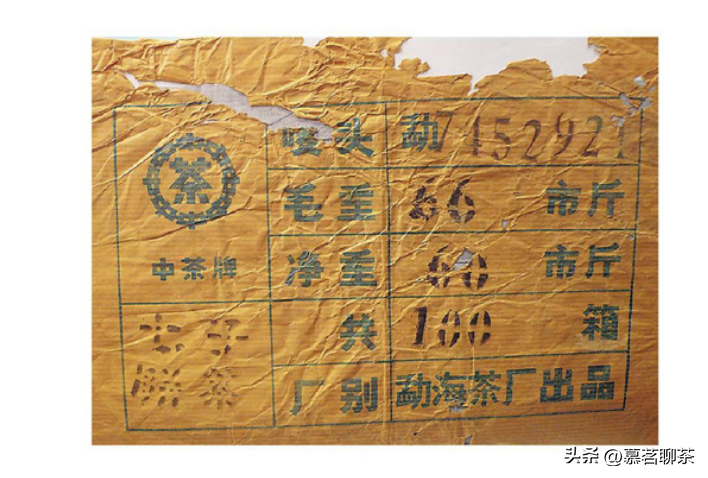 唛头 勐7452921
毛重 66 市斤
茶
中茶牌
净重 60 市斤
共 100 箱
七子
餅茶
厂别 勐海茶厂出品
头条 @慕茗聊茶